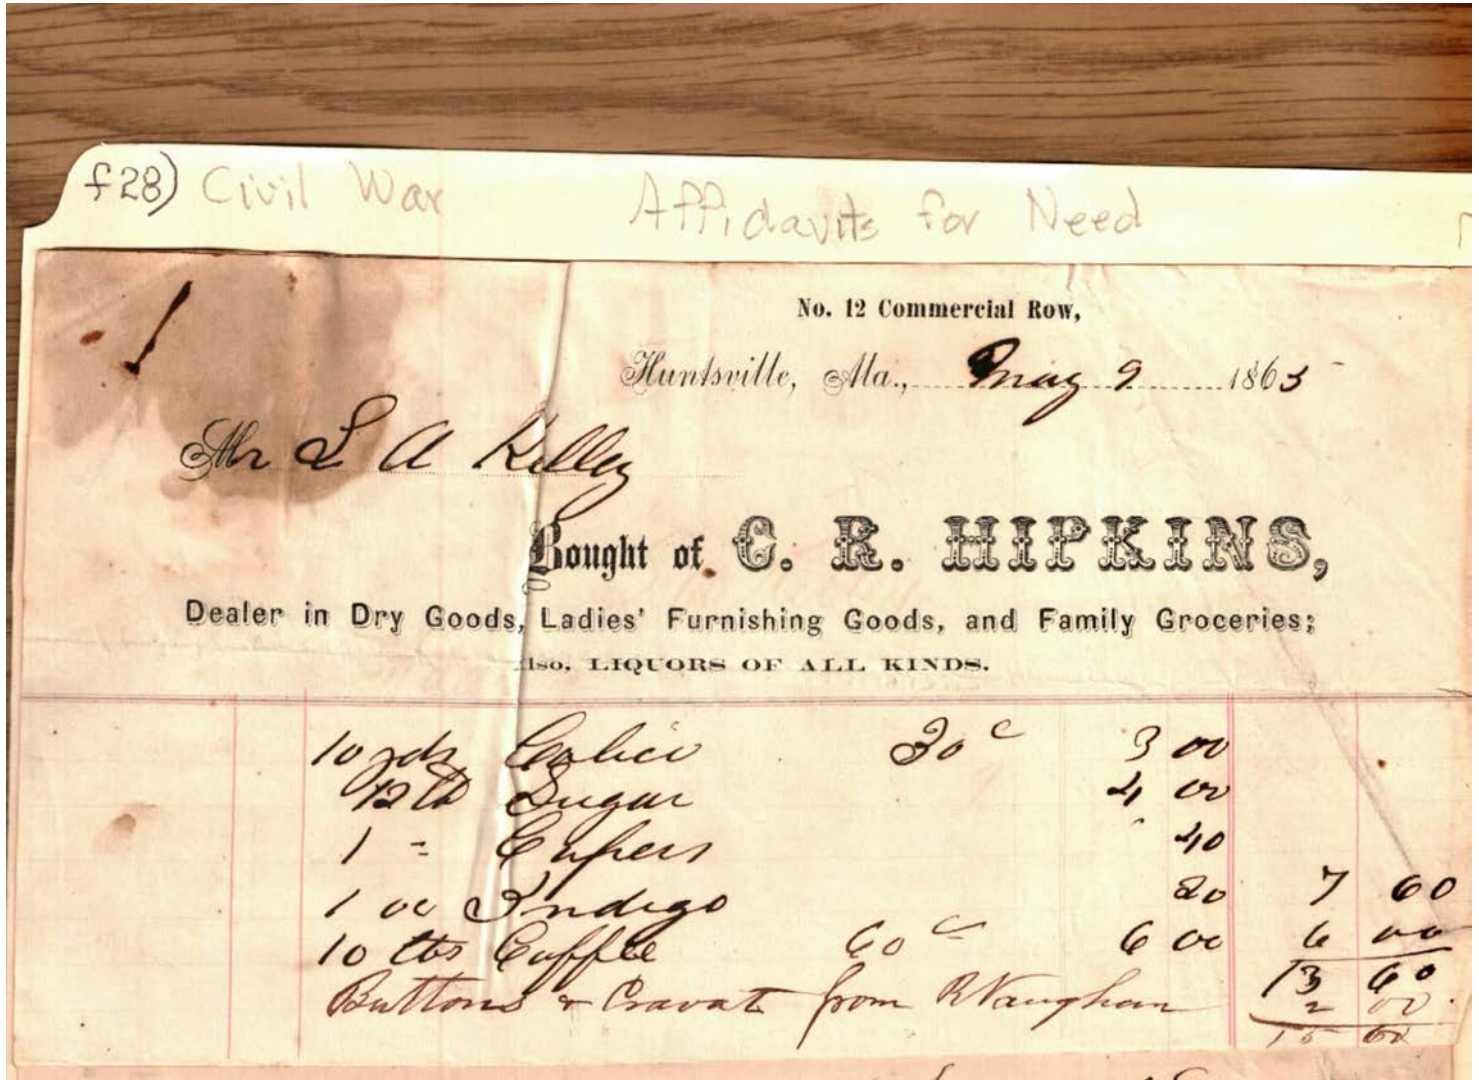 f28) Civil War Affidavits for Need
No. 12 Commercial Row,
Huntsville, Ala., May 9 1865
Mr L A Kelley
Bought of C. R. HIPKINS,
Dealer in Dry Goods, Ladies' Furnishing Goods, and Family Groceries;
Also, LIQUORS OF ALL KINDS.
10 yds Calico 30c 3 00
12 lb Sugar 4 00
1 " 40
1 oz Indigo 20 7 60
10 lbs Coffee 60c 6 00 6 00
13 60
Buttons & Cravat from R Vaughan 2 00
15 60